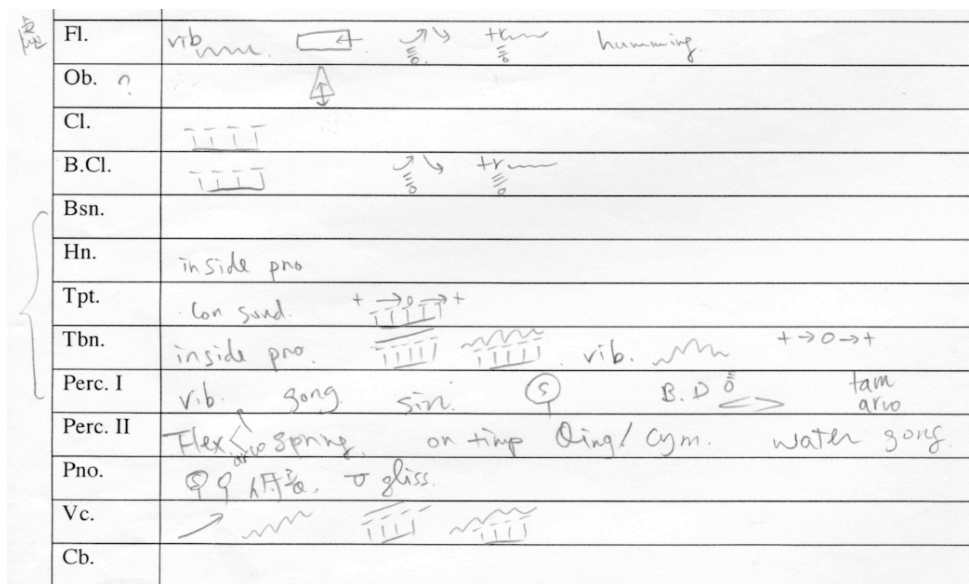 虛
Fl. vib. tr humming
Ob. ?
Cl.
B.Cl. tr
Bsn.
Hn. inside pno
Tpt. Con sord. + → o → +
Tbn. inside pno. vib. + → o → +
Perc. I vib. gong B.D tam
arco
Perc. II Flex. spring on timp Qing/ Cym. water gong
arco
Pno. gliss.
Vc.
Cb.